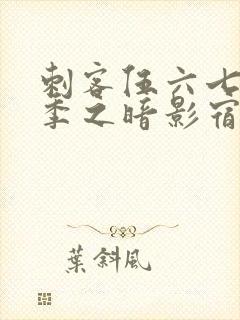 刺客伍六七
季之暗影宿
葉斜風